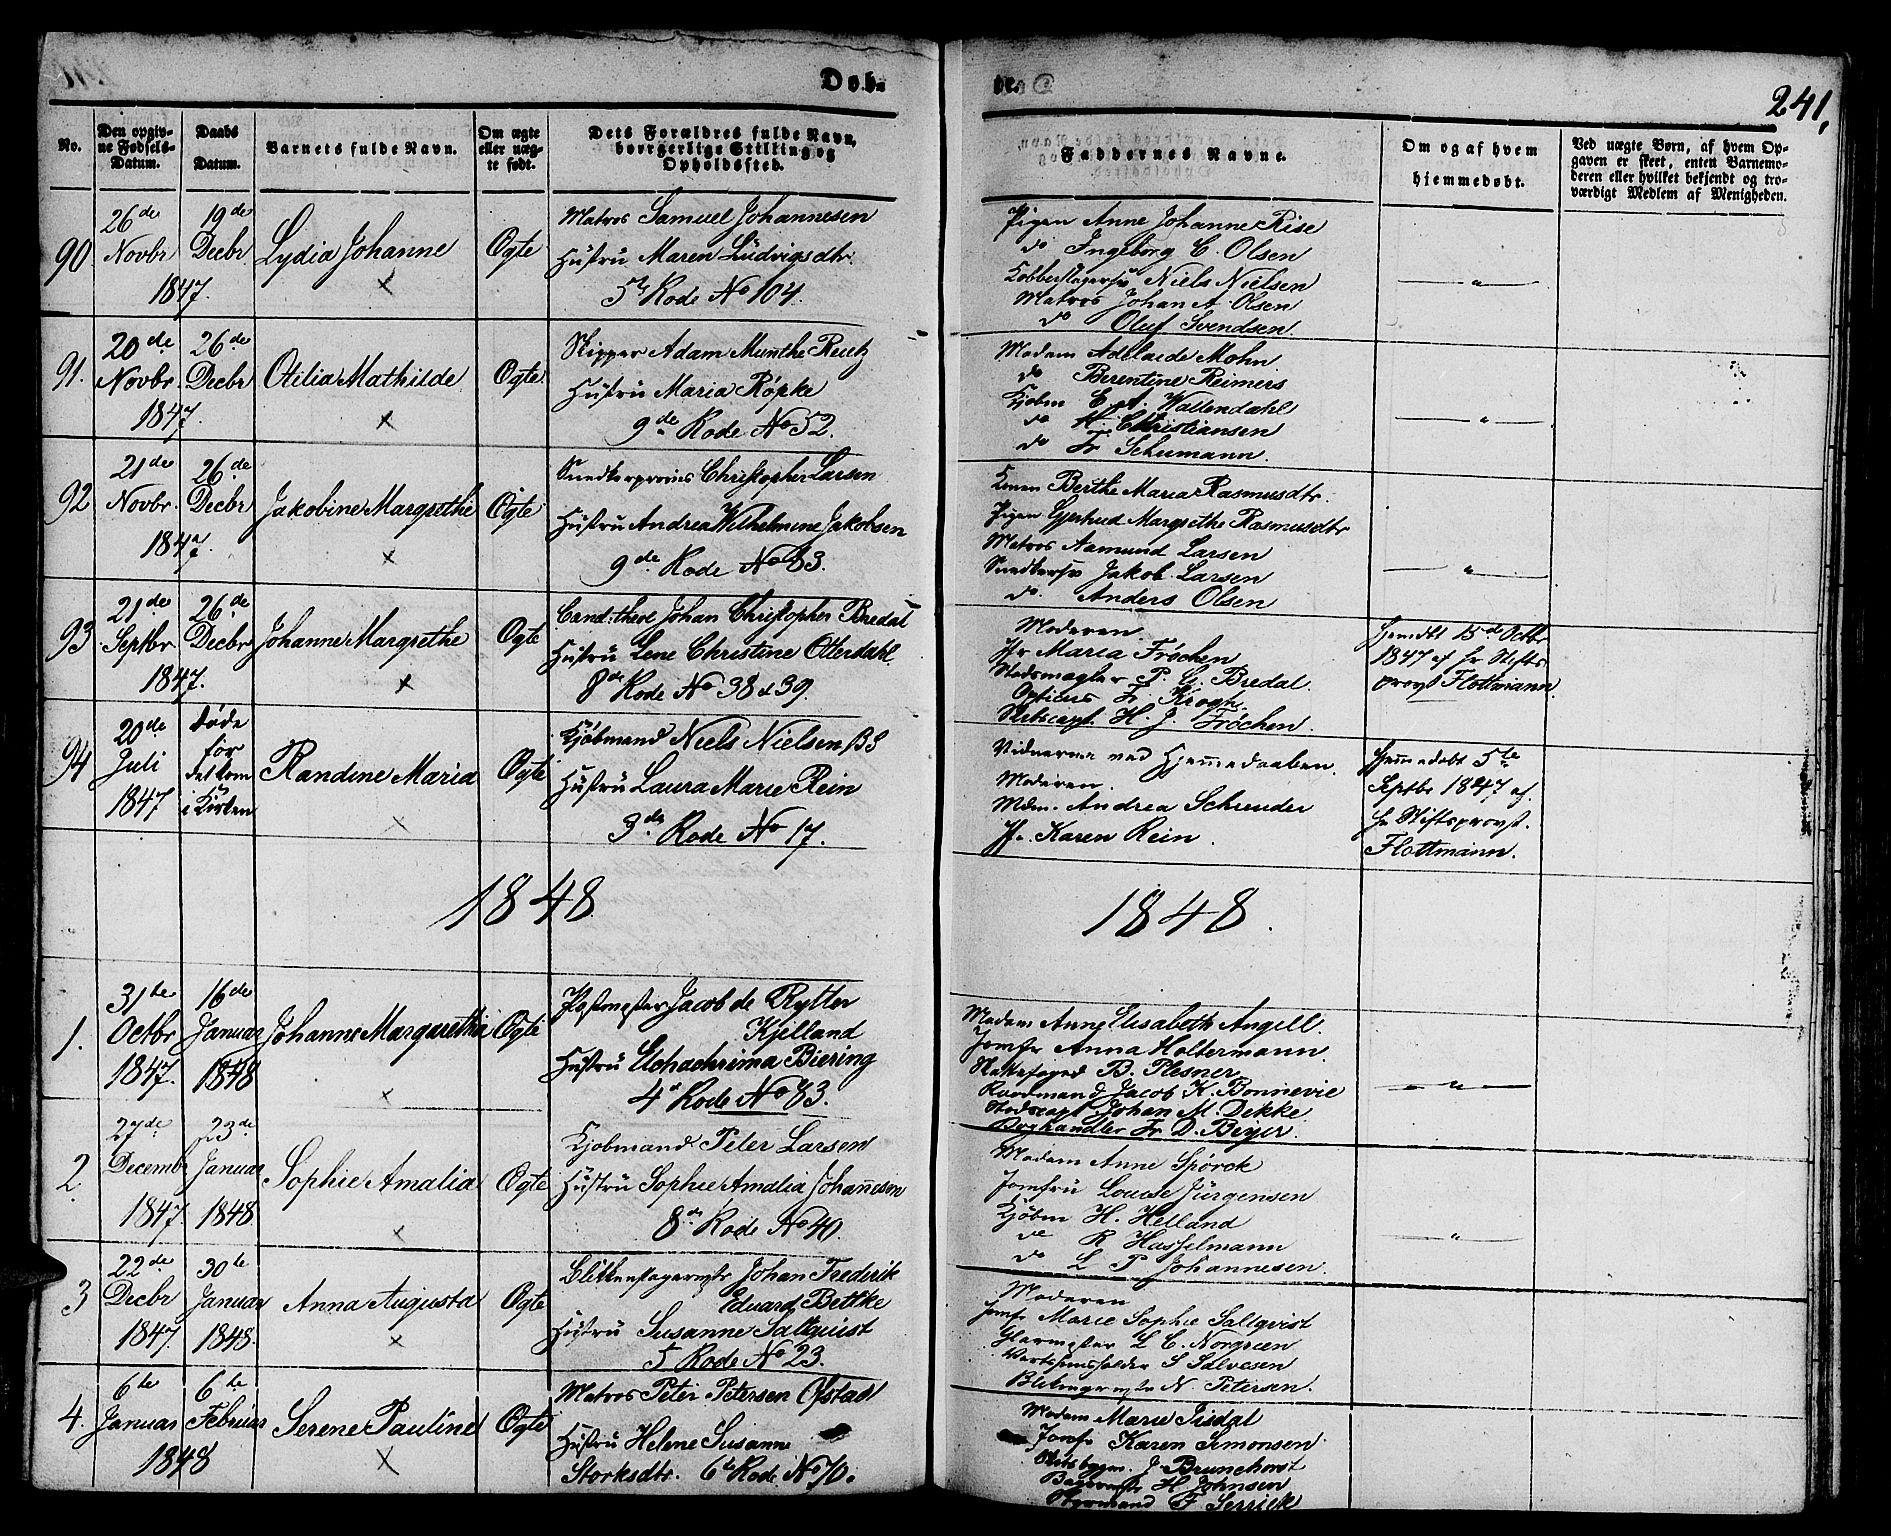 Døb-
te.
241,
No.
Den opgiv-
ne Fødsels-
Datum.
Daabs
Datum.
Barnets fulde Navn.
Om ægte
eller uæg-
te født.
Dets Forældres fulde Navn,
borgerlige Stilling og
Opholdssted.
Faddernes Navne.
Om og af hvem
hjemmedøbt.
Ved uægte Børn, af hvem Op-
gaven er skeet, enten Barnemo-
deren eller hvilket bekjendt og tro-
værdigt Medlem af Menigheden.
90
26de
Novbr
1847.
19de
Decbr
Lydia Johanne
Ogte
Matros Samuel Johannesen
Hustru Maren Ludvigsdtr.
5te Rode No 104.
Pigen Anne Johanne Rise
do Ingeborg C. Olsen
Kobberslagersv Niels Nielsen
Matros Johan A. Olsen
do Oluf Svendsen.
— " —
91.
20de
Novbr.
1847.
26de
Decbr
Otilia Mathilde
Ogte.
Skipper Adam Munthe Reutz
Hustru Maria Röpke
9de Rode No 52.
Madam Adelaide Mohn
do Berentine Reimers
Kjøbm Wallendahl
do H. Christiansen
do Fr Schumann.
— " —
92
21de
Novbr.
1847
26de
Decbr
Jakobine Margrethe
Ogte
Snedkersvend Christopher Larsen
Hustru Andrea Wilhelmine Jakobsen
9de Rode No 83.
Konen Berthe Maria Rasmusdtr.
Pigen Gjertrud Margrethe Rasmusdtr
Matros Aamund Larsen
Snedkersv Jakob Larsen
do. Anders Olsen
— " —
93
21de
Septbr
1847.
26de
Decbr
Johanne Margrethe
Ogte
Cand: theol Johan Christopher Bredal
Hustru Lene Christine Otterdahl
8de Rode No 38 & 39.
Moderen
Jfr Maria Fröchen
Stadsmægler P. G. Bredal.
Opticus Fr. Krogh.
Skibscapt. H. J. Fröchen.
hjemdbt 15de Octbr
1847 af Hr Stifts
provst Flottmann
94
20de
Juli
1847
døde
før
det kom
i Kirken
Randine Maria
Ogte
Kjöbmand Niels Nielsen BS
Hustru Laura Marie Rein
3de Rode No 17.
Vidnerne ved Hjemmedaaben.
Moderen.
Mdm. Andrea Schrøder
Jfr. Karen Rein.
hjemmedøbt 5te
Septbr 1847 af.
Hr Stiftsprovst.
Flottmann.
1848
1848.
1.
31te
Octbr
1847.
16de
Januar
1848
Johanne Margarethe
Ogte
Postmester Jacob de Rytter
Kjelland
Hustru Biering
4de Rode No 83.
Madam Anne Elisabeth Angell.
Jomfr Anna Holtermann.
B. Plesner
Raadmand Jacob K. Bonnevie
Stadscapt Johan M. Dekke
Boghandler Fr D. Beyer.
— " —
2.
27de
Decembr
1847.
23de
Januar
1848
Sophie Amalia
Ogte
Kjöbmand Peter Larsen
Hustru Sophie Amalia Johannesen
8de Rode No 40.
Madam Anne Spörck
Jomfru Louise Jürgensen
Kjöbm H. Helland
do R Hasselmann
do L P Johannesen.
— " —
3
22de
Decbr
1847.
30te
Januar
1848.
Anna Augusta
Ogte
Blikkenslagermstr Johan Frederik
Eduard Bettke
Hustru Susanne Sallquist
5 Rode No 23.
Moderen
Jomfr Marie Sophie Sallqvist
Glarmester L C. Norgreen
Vertshuusholder S Salvesen
N. Petersen.
4.
6te
Januar
1848
6te
Februar
Serene Pauline
Ogte
Matros Peter Petersen Ofstad
Hustru Helene Susanne
Storksdtr. 6te Rode No 70.
Madam Marie Jisdal
Jomfr Karen Simonsen
Skibsbygm. J. Brunchorst
Bagermstr H Johnsen
Styrmand F Serrick